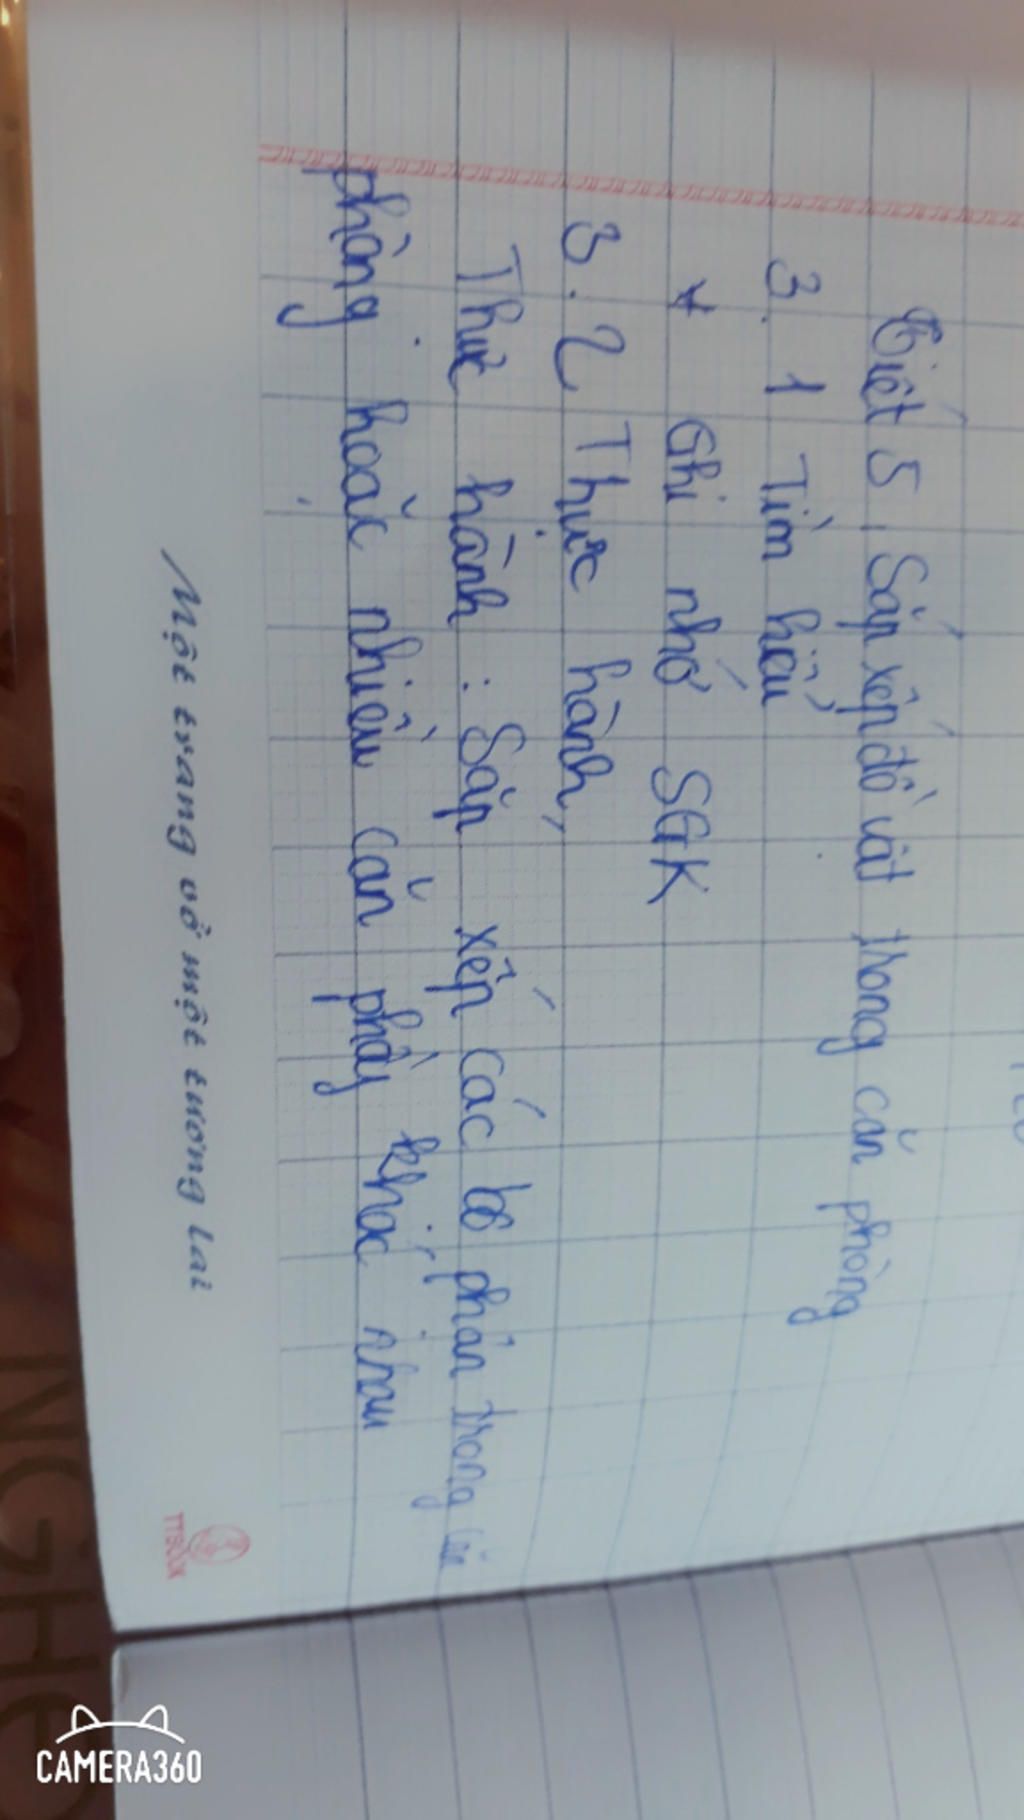 Tiết 5. Sắp xếp đồ vật trong căn phòng
3.1 Tìm hiểu
* Ghi nhớ SGK
3.2 Thực hành,
Thực hành : Sắp xếp các bộ phận trong căn
phòng hoặc nhiều căn phòng khác nhau
Một trang vở một tương lai
TTBOOK
NGHỆ
CAMERA360